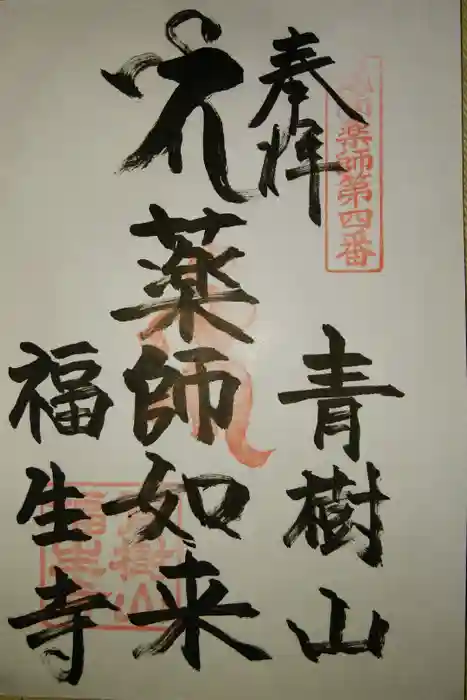 薬師第四番
奉拝
青樹山
薬師如来
福生寺